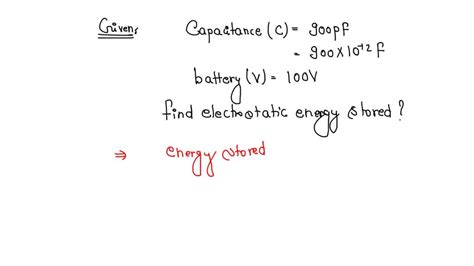 Given, Capacitance (C) = 900pF
= 900X10⁻¹² F
battery (V) = 100V
find electrostatic energy stored ?
⇒ energy stored